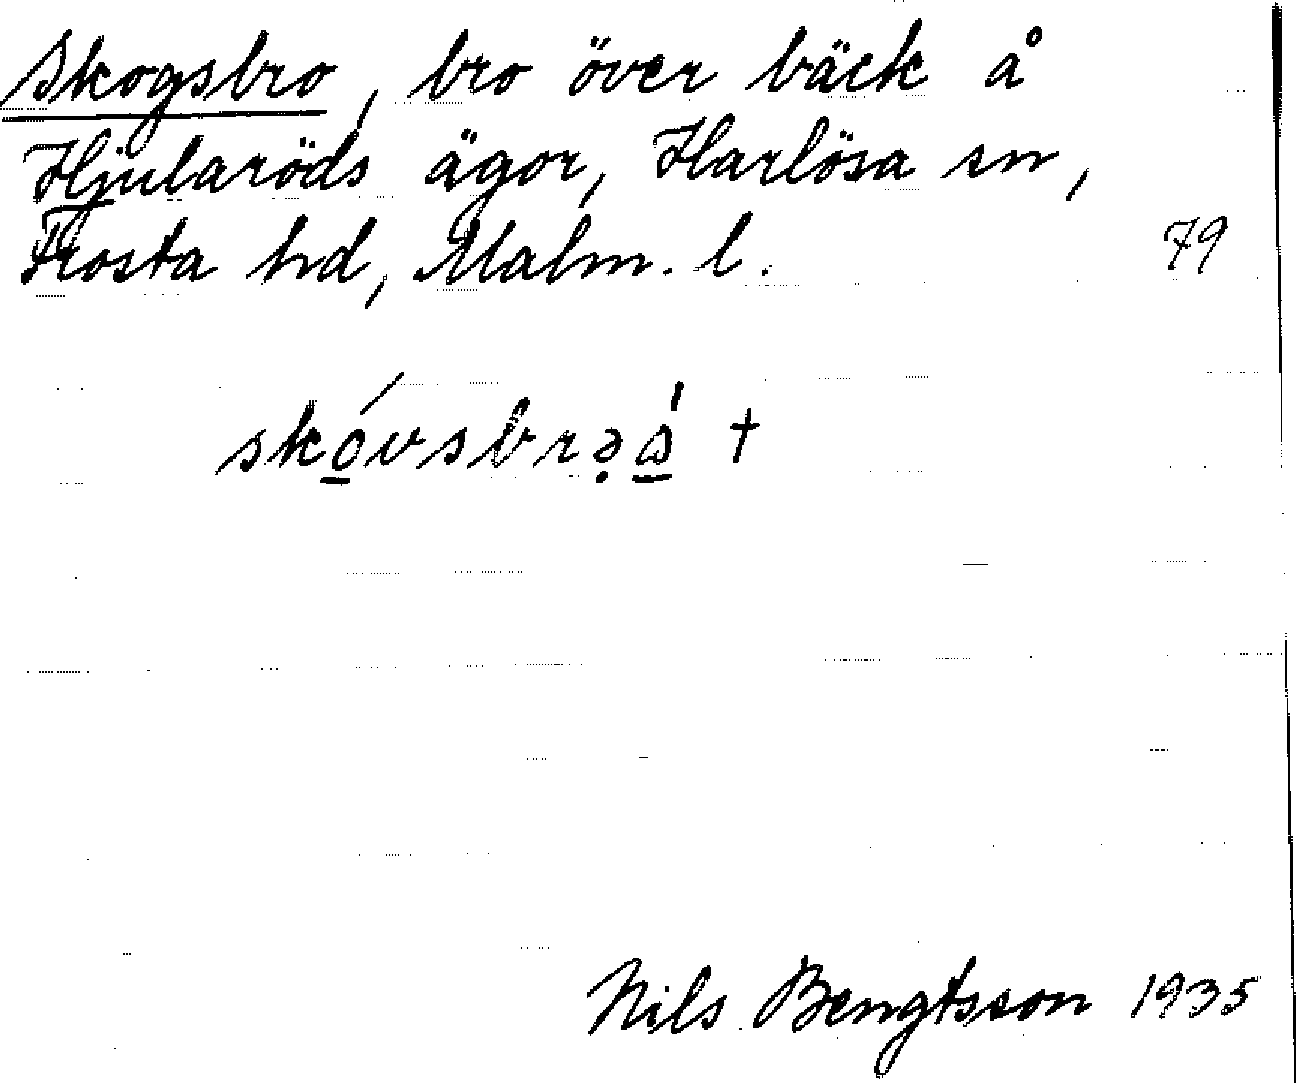 Skogsbro, bro över bäck å
Hjularöds ägor, Harlösa sn,
Frosta hd, Malm. l. 79
skó̲vsbrə̣a̲̍ †
Nils Bengtsson 1935